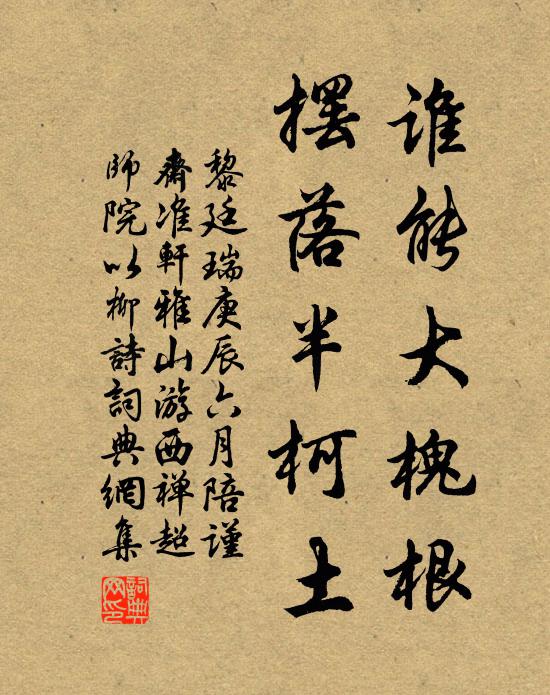 谁能大槐根
摆落半柯土
黎廷瑞庚辰六月陪谨
斋准轩雅山游西禅超
師院以柳詩詞典網集
詞典网印